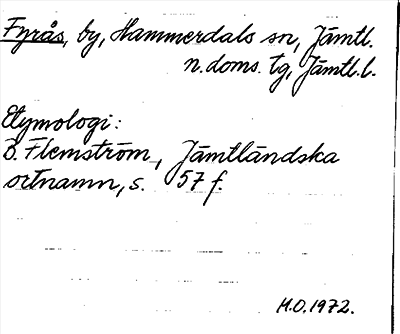 Fyrås, by, Hammerdals sn, Jämtl.
n. doms. tg, Jämtl. l.
Etymologi:
B. Flemström, Jämtländska
ortnamn, s. 57 f.
M.O. 1972.